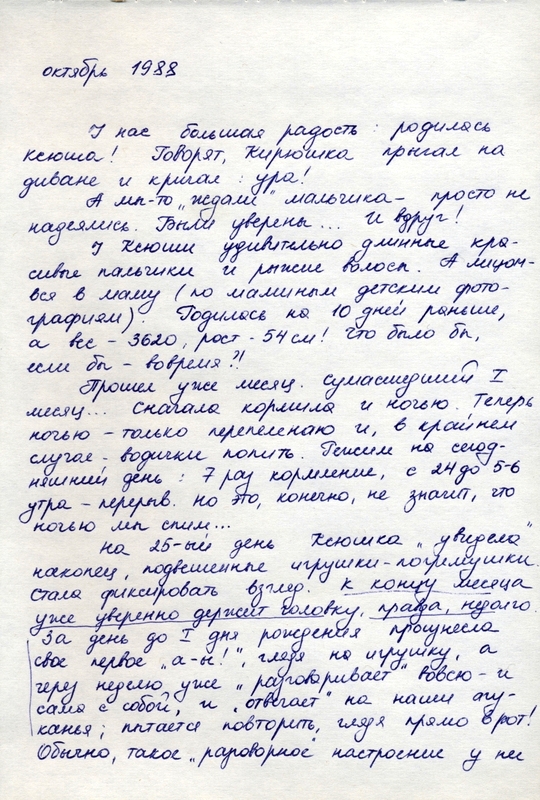 октябрь 1988
У нас большая радость: родилась
Ксюша! Говорят, Кирюшка прыгал на
диване и кричал: ура!
А мы-то „ждали" мальчика – просто не
надеялись. Были уверены... И вдруг!
У Ксюши удивительно длинные кра-
сивые пальчики и рыжие волосы. А лицом-
вся в маму (по маминым детским фото-
графиям). Родилась на 10 дней раньше,
а вес - 3620, рост - 54 см! Что было бы,
если бы - вовремя?!
Прошел уже месяц. Сумасшедший I
месяц... Сначала кормила и ночью. Теперь
ночью – только перепеленаю и, в крайнем
случае - водички попить. Режим на сегод-
няшний день: 7 раз кормление, с 24 до 5-6
утра – перерыв. Но это, конечно, не значит, что
ночью мы спим...
На 25-ый день Ксюшка „увидела"
наконец, подвешенные игрушки-погремушки.
Стала фиксировать взгляд. К концу месяца
уже уверенно держит головку, правда, недолго.
За день до I дня рождения произнесла
свое первое „а-ы!", глядя на игрушку, а
через неделю уже „разговаривает" вовсю - и
сама с собой, и „отвечает" на наши агу-
канья; пытается повторить, глядя прямо в рот!
Обычно, такое „разговорное" настроение у нее